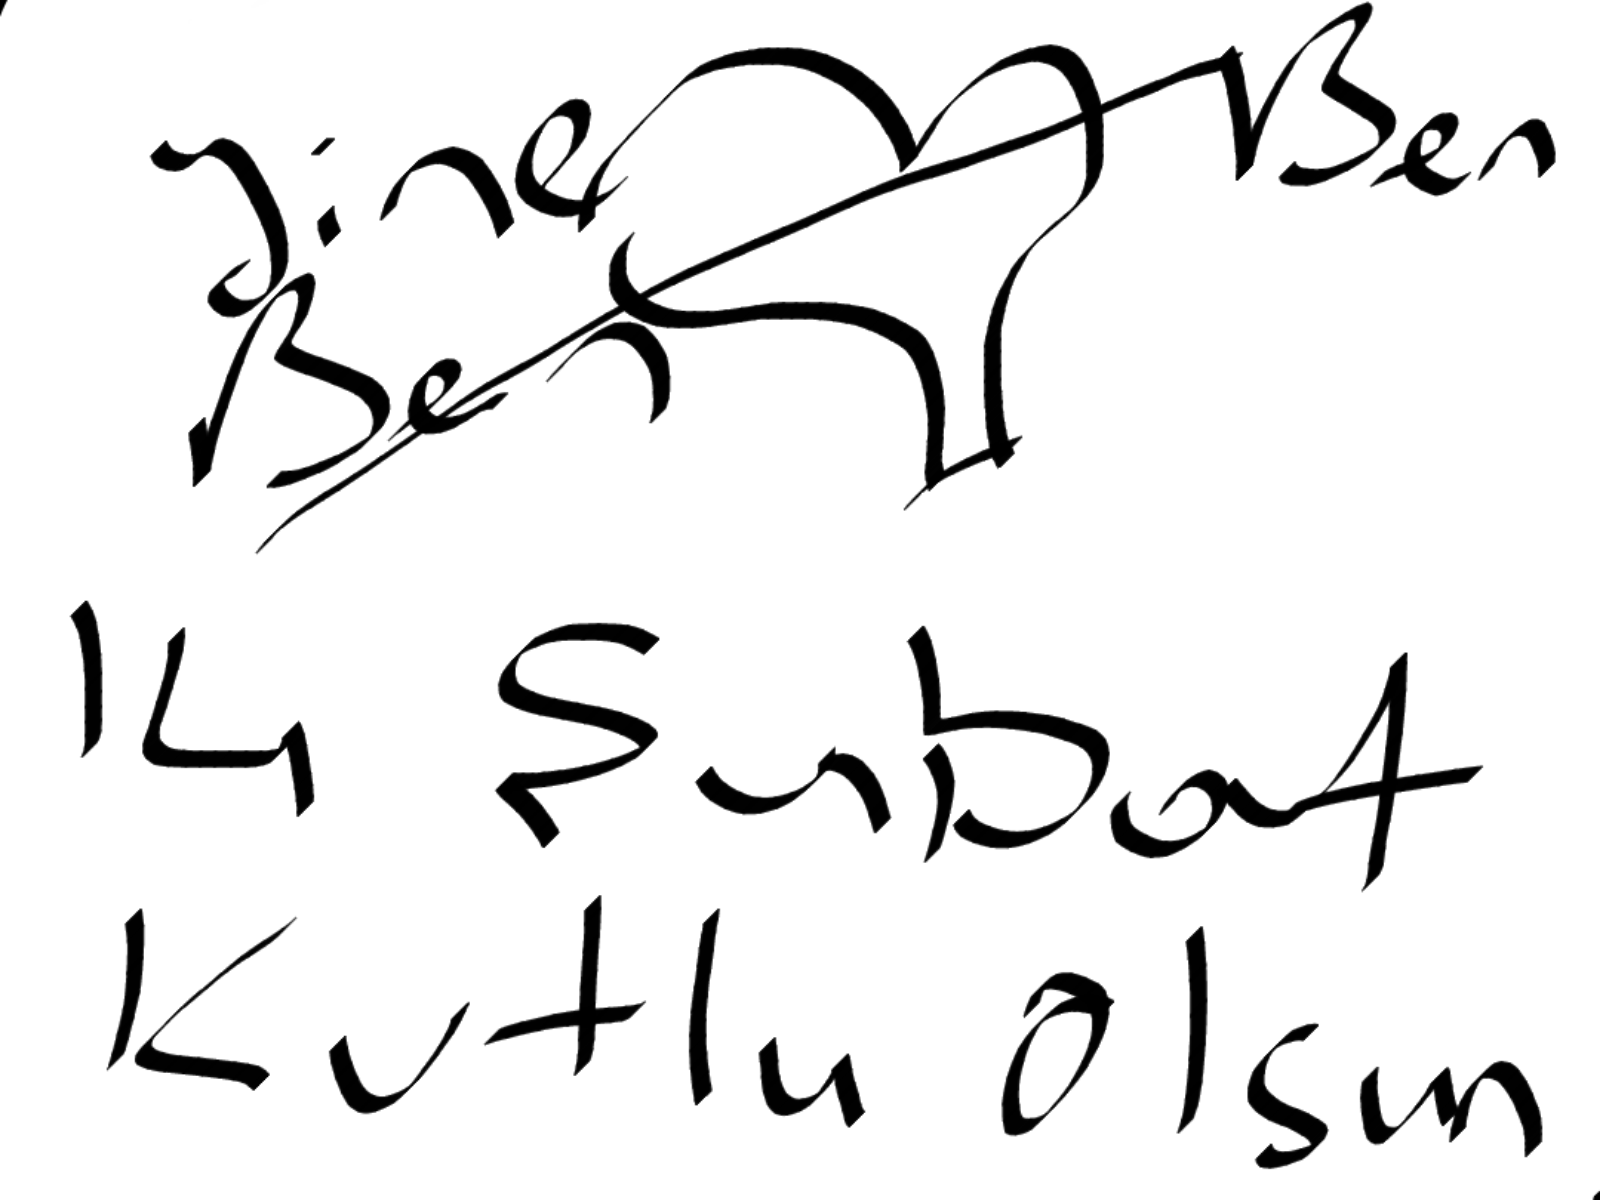 Yine
Ben Ben
14 Şubat
Kutlu Olsun